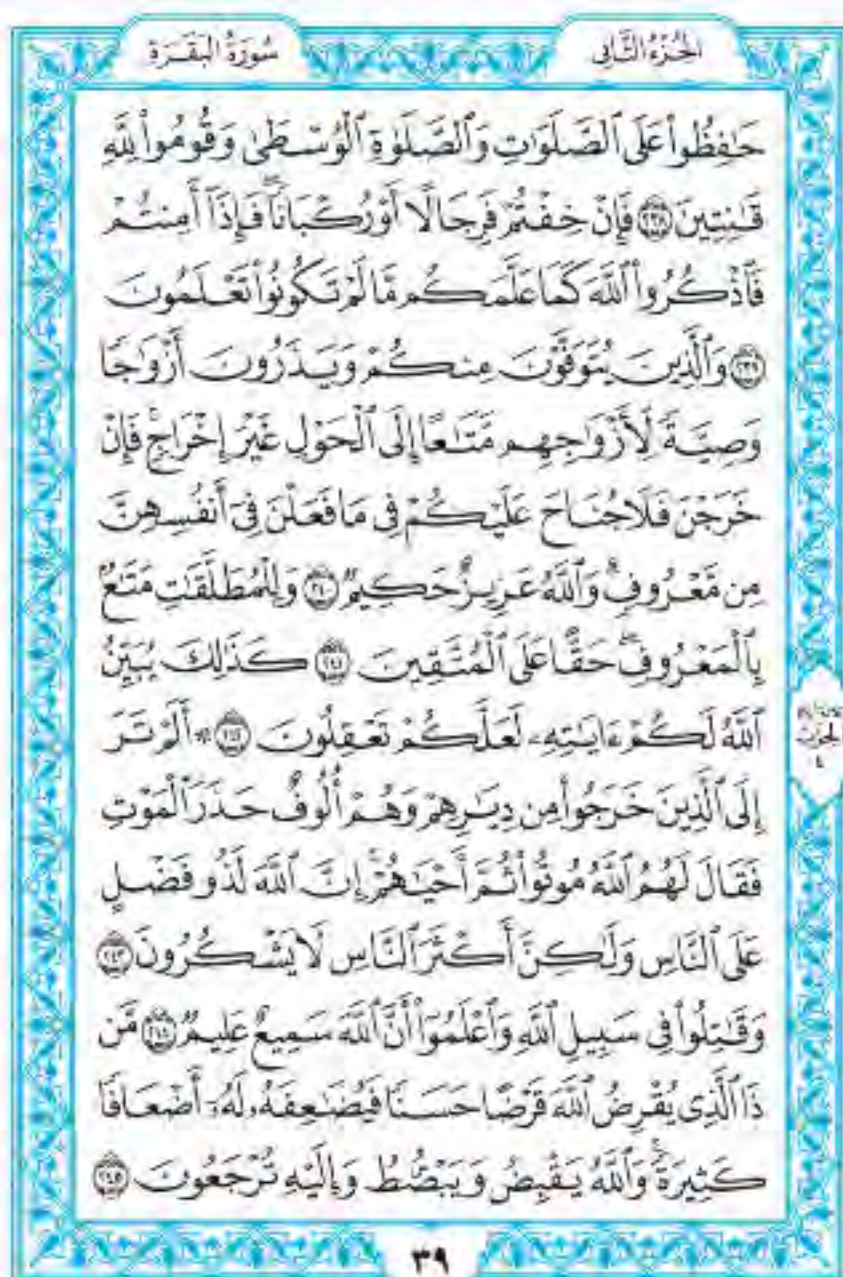 الجُزْءُ الثَّانِي
سُورَةُ البَقَرَةِ
حَٰفِظُوا۟ عَلَى ٱلصَّلَوَٰتِ وَٱلصَّلَوٰةِ ٱلْوُسْطَىٰ وَقُومُوا۟ لِلَّهِ
قَٰنِتِينَ ٢٣٨ فَإِنْ خِفْتُمْ فَرِجَالًا أَوْ رُكْبَانًاۖ فَإِذَآ أَمِنتُمْ
فَٱذْكُرُوا۟ ٱللَّهَ كَمَا عَلَّمَكُم مَّا لَمْ تَكُونُوا۟ تَعْلَمُونَ
٢٣٩ وَٱلَّذِينَ يُتَوَفَّوْنَ مِنكُمْ وَيَذَرُونَ أَزْوَٰجًا
وَصِيَّةً لِّأَزْوَٰجِهِم مَّتَٰعًا إِلَى ٱلْحَوْلِ غَيْرَ إِخْرَاجٍۚ فَإِنْ
خَرَجْنَ فَلَا جُنَاحَ عَلَيْكُمْ فِى مَا فَعَلْنَ فِىٓ أَنفُسِهِنَّ
مِن مَّعْرُوفٍۗ وَٱللَّهُ عَزِيزٌ حَكِيمٌ ٢٤٠ وَلِلْمُطَلَّقَٰتِ مَتَٰعٌۢ
بِٱلْمَعْرُوفِۖ حَقًّا عَلَى ٱلْمُتَّقِينَ ٢٤١ كَذَٰلِكَ يُبَيِّنُ
ٱللَّهُ لَكُمْ ءَايَٰتِهِۦ لَعَلَّكُمْ تَعْقِلُونَ ٢٤٢ ۞ أَلَمْ تَرَ
إِلَى ٱلَّذِينَ خَرَجُوا۟ مِن دِيَٰرِهِمْ وَهُمْ أُلُوفٌ حَذَرَ ٱلْمَوْتِ
فَقَالَ لَهُمُ ٱللَّهُ مُوتُوا۟ ثُمَّ أَحْيَٰهُمْۚ إِنَّ ٱللَّهَ لَذُو فَضْلٍ
عَلَى ٱلنَّاسِ وَلَٰكِنَّ أَكْثَرَ ٱلنَّاسِ لَا يَشْكُرُونَ ٢٤٣
وَقَٰتِلُوا۟ فِى سَبِيلِ ٱللَّهِ وَٱعْلَمُوٓا۟ أَنَّ ٱللَّهَ سَمِيعٌ عَلِيمٌ ٢٤٤ مَّن
ذَا ٱلَّذِى يُقْرِضُ ٱللَّهَ قَرْضًا حَسَنًا فَيُضَٰعِفَهُۥ لَهُۥٓ أَضْعَافًا
كَثِيرَةًۚ وَٱللَّهُ يَقْبِضُ وَيَبْصُۜطُ وَإِلَيْهِ تُرْجَعُونَ ٢٤٥
الحِزْب
٤
٣٩